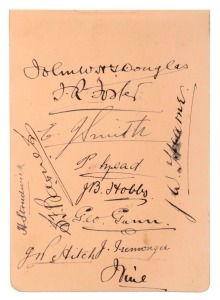 John W.H.T. Douglas
F.R. Foster
E J Smith
J W Hearne
H Strudwick
J.B. Hobbs
Geo. Gunn
J W Hitch
J. Iremonger
J Vine